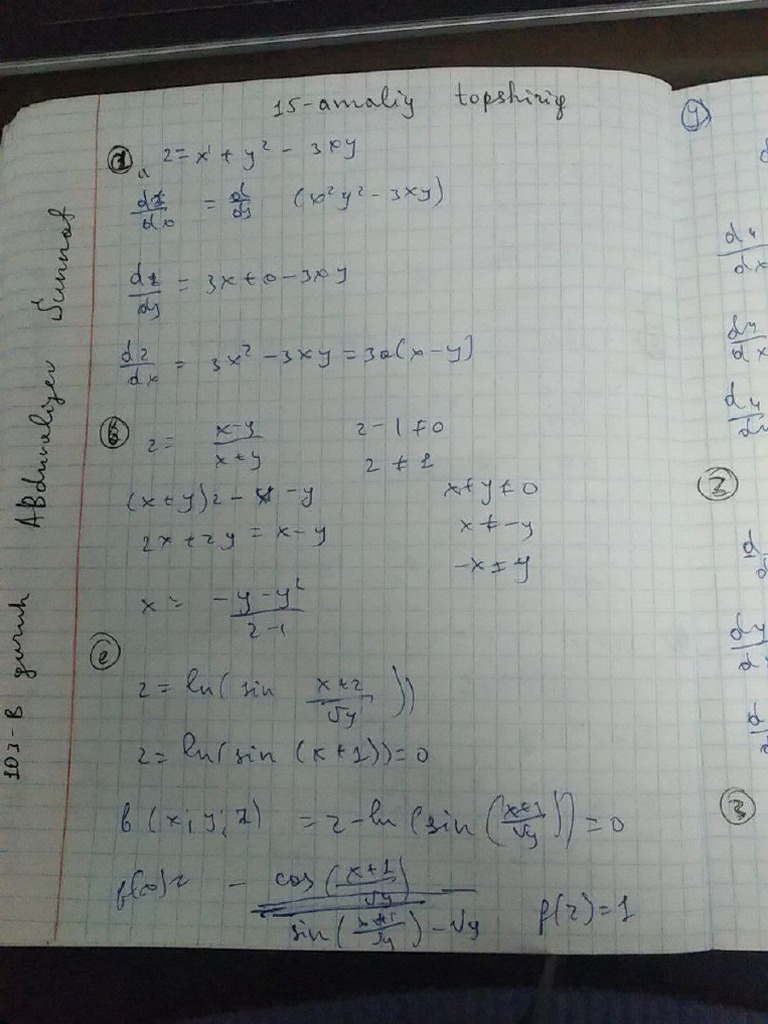 15-amaliy topshiriq
① a z = x + y² - 3xy
dz/dx = d/dy (x²y² - 3xy)
dz/dy = 3x + 0 - 3xy
dz/dx = 3x² - 3xy = 3x(x - y)
z = x-y/x+y z - 1 ≠ 0
z ≠ 1
(x+y)z - x - y x + y ≠ 0
zx + zy = x - y x ≠ -y
-x ≠ y
x = -y - yz/z-1
e
z = ln(sin x+z/√y))
z = ln(sin (x+1)) = 0
(x; y; z) = z - ln(sin(x+1/√y)) = 0
- cos(x+1/√y)/sin(x+1/√y) - √y f(z) = 1
103-B guruh ABdunaliyev Sunnat
y
dy/dx
dy/dx
3
3